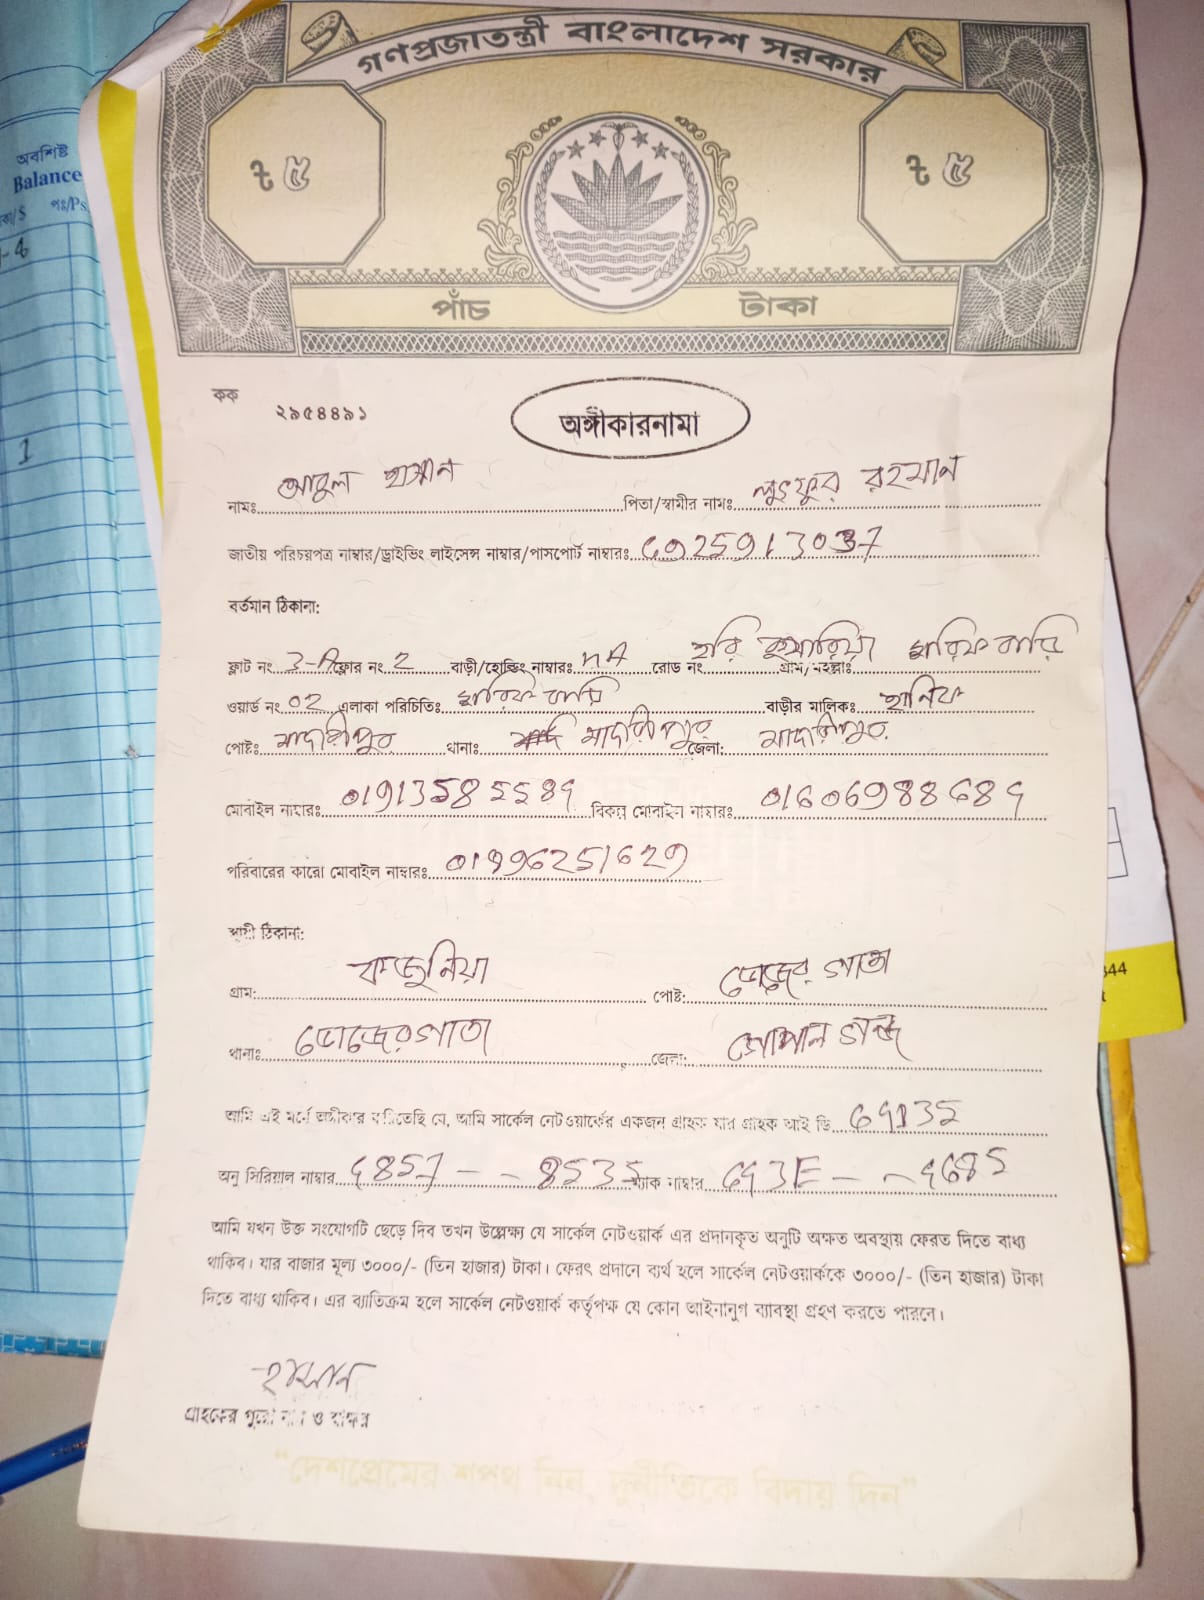 গণপ্রজাতন্ত্রী বাংলাদেশ সরকার
৳ ৫ ৳ ৫
পাঁচ টাকা
অবশিষ্ট
Balance
টাকা/$ পঃ/Ps.
1
কক ২৯৫৪৪৯১
অঙ্গীকারনামা
নামঃ আবুল হাসান পিতা/স্বামীর নামঃ লুৎফুর রহমান
জাতীয় পরিচয়পত্র নাম্বার/ড্রাইভিং লাইসেন্স নাম্বার/পাসপোর্ট নাম্বারঃ
বর্তমান ঠিকানা:
ফ্লাট নং 3-A ফ্লোর নং 2 বাড়ী/হোল্ডিং নাম্বারঃ NA রোড নং হরি কুমারিয়া গ্রাম/মহল্লাঃ
ওয়ার্ড নং 02 এলাকা পরিচিতিঃ বাড়ীর মালিকঃ হানিফ
পোষ্টঃ মাদারীপুর থানাঃ মাদারীপুর জেলা: মাদারীপুর
মোবাইল নাম্বারঃ বিকল্প মোবাইল নাম্বারঃ
পরিবারের কারো মোবাইল নাম্বারঃ
স্থায়ী ঠিকানা:
গ্রাম: কাজুলিয়া পোষ্ট:
থানাঃ জেলা: গোপালগঞ্জ
আমি এই মর্মে অঙ্গীকার করিতেছি যে, আমি সার্কেল নেটওয়ার্কের একজন গ্রাহক যার গ্রাহক আই ডি
অনু সিরিয়াল নাম্বার ম্যাক নাম্বার
আমি যখন উক্ত সংযোগটি ছেড়ে দিব তখন উল্লেক্ষ্য যে সার্কেল নেটওয়ার্ক এর প্রদানকৃত অনুটি অক্ষত অবস্থায় ফেরত দিতে বাধ্য
থাকিব। যার বাজার মূল্য ৩০০০/- (তিন হাজার) টাকা। ফেরৎ প্রদানে ব্যর্থ হলে সার্কেল নেটওয়ার্ককে ৩০০০/- (তিন হাজার) টাকা
দিতে বাধ্য থাকিব। এর ব্যাতিক্রম হলে সার্কেল নেটওয়ার্ক কর্তৃপক্ষ যে কোন আইনানুগ ব্যাবস্থা গ্রহণ করতে পারনে।
হাসান
গ্রাহকের পুরো নাম ও স্বাক্ষর
"দেশপ্রেমের শপথ নিন, দুর্নীতিকে বিদায় দিন"
344